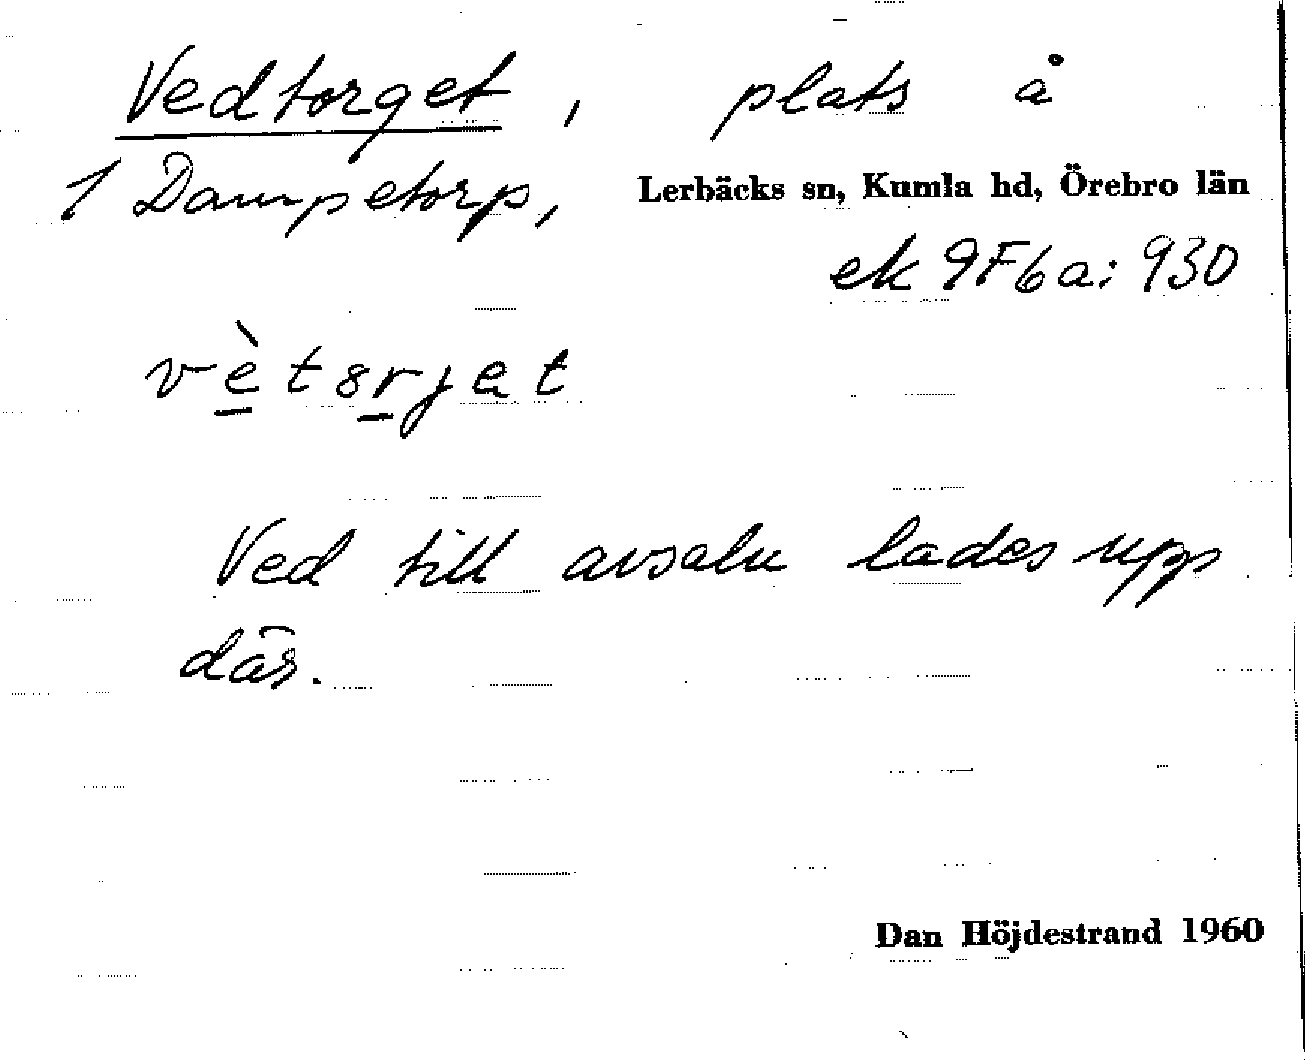 Vedtorget, plats å
1 Dampetorp, Lerbäcks sn, Kumla hd, Örebro län
ek 9F6a: 930
vètsrjet
Ved till avsalu lades upp
där.
Dan Höjdestrand 1960